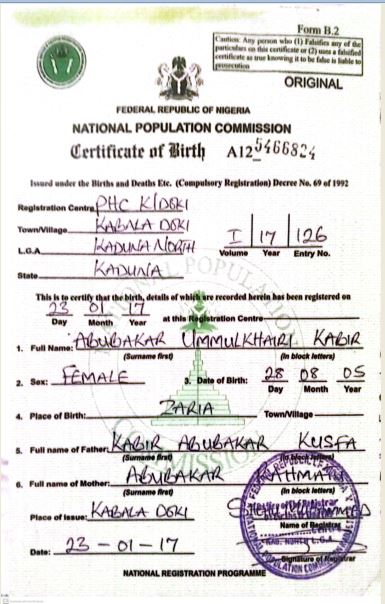 Form B.2
Caution: Any person who (1) Falsifies any of the
particulars on this certificate or (2) uses a falsified
certificate as true knowing it to be false is liable to
prosecution
ORIGINAL
FEDERAL REPUBLIC OF NIGERIA
NATIONAL POPULATION COMMISSION
Certificate of Birth A12 5466824
Issued under the Births and Deaths Etc. (Compulsory Registration) Decree No. 69 of 1992
Registration Centre PHC K/DOKI
Town/Village KABALA DOKI
L.G.A KADUNA NORTH
I 17 126
Volume Year Entry No.
State KADUNA
This is to certify that the birth, details of which are recorded herein has been registered on
23 01 17
Day Month Year at this Registration Centre
1. Full Name: ABUBAKAR UMMULKHAIRI KABIR
(Surname first) (in block letters)
2. Sex: FEMALE 3. Date of Birth: 28 08 05
Day Month Year
4. Place of Birth: ZARIA Town/Village
5. Full name of Father: KABIR ABUBAKAR KUSFA
(Surname first) (in block letters)
6. Full name of Mother: ABUBAKAR RAHMATU
(Surname first) (in block letters)
Place of Issue: KABALA DOKI
Name of Registrar
Date: 23-01-17
Signature of Registrar
NATIONAL REGISTRATION PROGRAMME